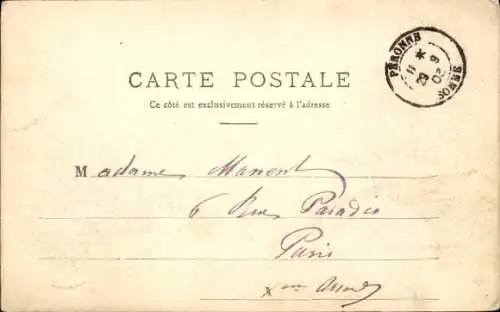 PÉRONNE
11 * 9
29 02
SOMME
CARTE POSTALE
Ce côté est exclusivement réservé à l'adresse
Madame Manent
6 Rue Paradis
Paris
Xème Arrond